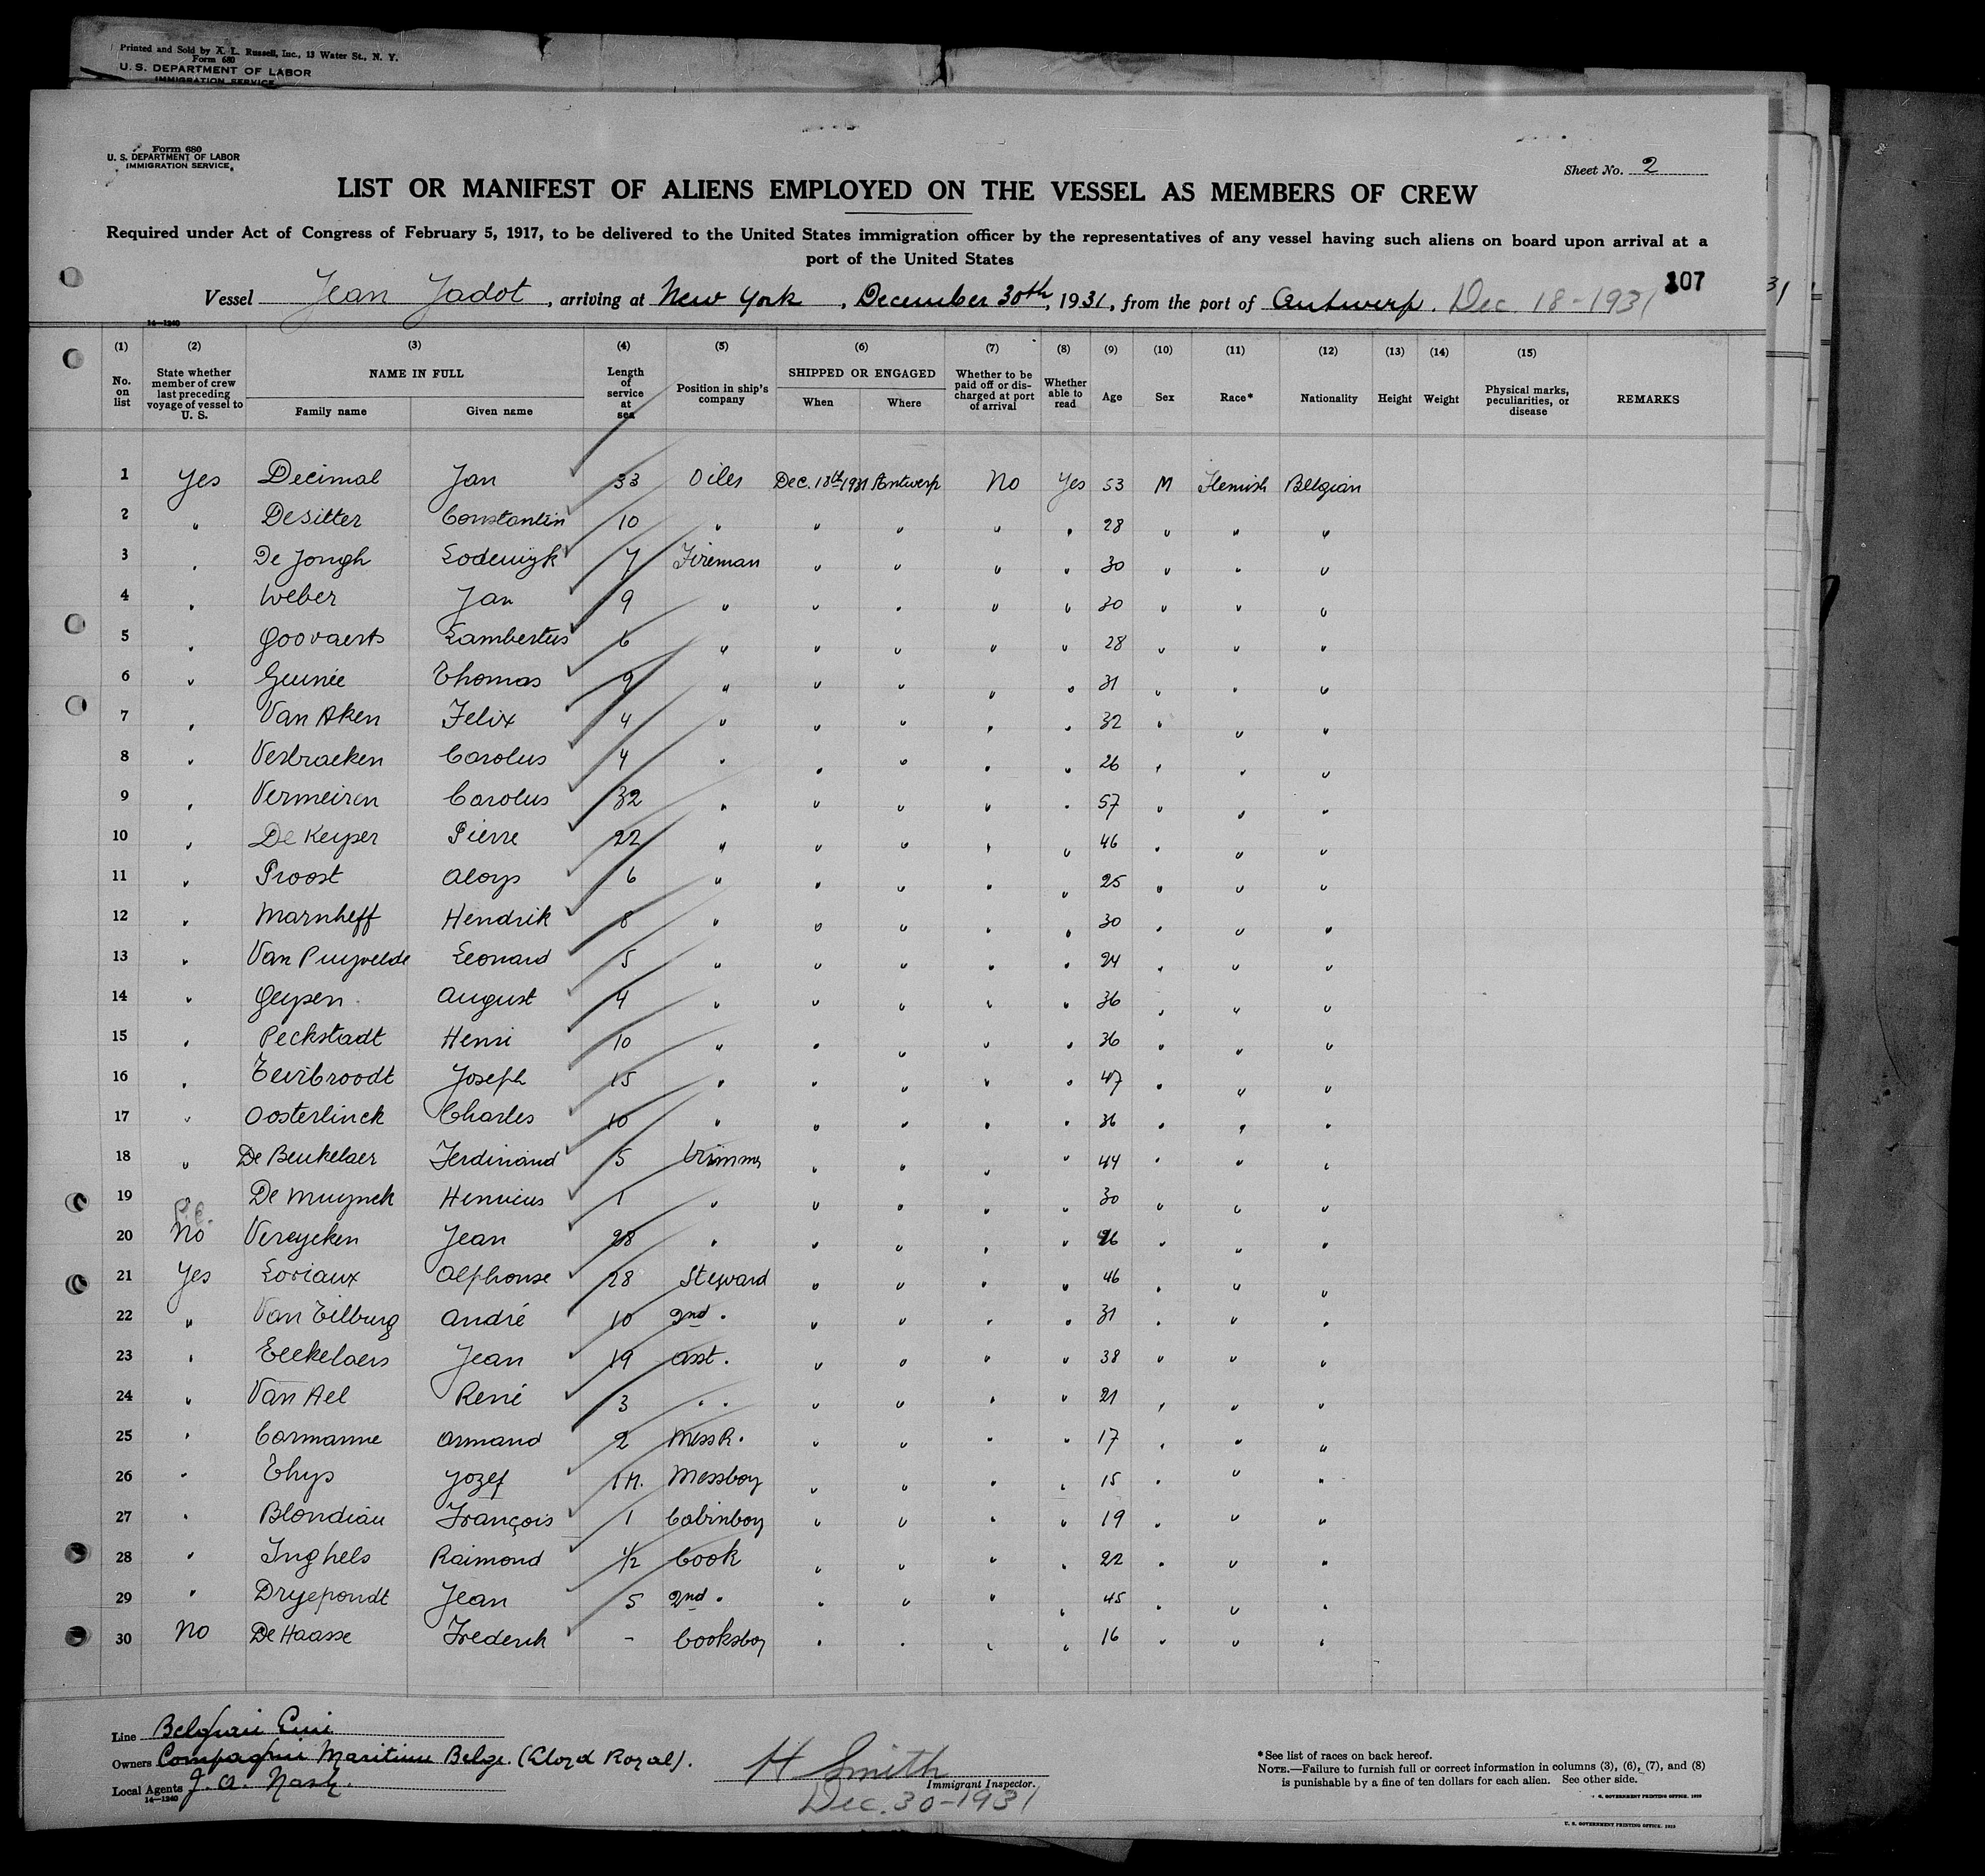 Printed and Sold by X. L. Russell, Inc., 13 Water St., N. Y.
Form 680
U. S. DEPARTMENT OF LABOR
IMMIGRATION SERVICE
Form 680
U. S. DEPARTMENT OF LABOR
IMMIGRATION SERVICE
Sheet No. 2
LIST OR MANIFEST OF ALIENS EMPLOYED ON THE VESSEL AS MEMBERS OF CREW
Required under Act of Congress of February 5, 1917, to be delivered to the United States immigration officer by the representatives of any vessel having such aliens on board upon arrival at a
port of the United States
107
Vessel Jean Jadot, arriving at New York, December 30th, 1931, from the port of Antwerp. Dec. 18-1931
14-1240
(1) (2) (3) (4) (5) (6) (7) (8) (9) (10) (11) (12) (13) (14) (15)
No. on list State whether member of crew last preceding voyage of vessel to U. S. NAME IN FULL Family name Given name Length of service at sea Position in ship's company SHIPPED OR ENGAGED When Where Whether to be paid off or discharged at port of arrival Whether able to read Age Sex Race* Nationality Height Weight Physical marks, peculiarities, or disease REMARKS
1 Yes Decimal Jan 33 Oiler Dec. 18th 1931 Antwerp No Yes 53 M Flemish Belgian
2 " Desitter Constantin 10 " " " " " 28 " " "
3 " De Jongh Lodewyk 7 Fireman " " " " 30 " " "
4 " Weber Jan 9 " " " " " 30 " " "
5 " Goovaerts Lambertus 6 " " " " " 28 " " "
6 " Guinée Thomas 9 " " " " " 31 " " "
7 " Van Aken Felix 4 " " " " " 32 " " "
8 " Verbraeken Carolus 4 " " " " " 26 " " "
9 " Vermeiren Carolus 32 " " " " " 57 " " "
10 " De Keyser Pierre 22 " " " " " 46 " " "
11 " Proost Aloys 6 " " " " " 25 " " "
12 " Marnheff Hendrik 8 " " " " " 30 " " "
13 " Van Puyvelde Leonard 5 " " " " " 24 " " "
14 " Geysen August 4 " " " " " 36 " " "
15 " Peckstadt Henri 10 " " " " " 36 " " "
16 " Teirbroodt Joseph 15 " " " " " 47 " " "
17 " Oosterlinck Charles 10 " " " " " 36 " " "
18 " De Beukelaer Ferdinand 5 Trimmer " " " " 44 " " "
19 De Muynck Henricus 1 " " " " " 30 " " "
20 No Vereycken Jean 28 " " " " " 26 " " "
21 Yes Loriaux Alphonse 28 Steward " " " " 46 " " "
22 " Van Tilburg André 10 2nd " " " " " 31 " " "
23 " Eeekelaers Jean 19 asst. " " " " 38 " " "
24 " Van Ael René 3 " " " " " " 21 " " "
25 " Cormanne Armand 2 Mess R. " " " " 17 " " "
26 " Thys Jozef 1 M. Messboy " " " " 15 " " "
27 " Blondiau François 1 Cabinboy " " " " 19 " " "
28 " Inghels Raimond 1/2 Cook " " " " 22 " " "
29 " Dryepondt Jean 5 2nd " " " " " 45 " " "
30 No De Haasse Frederik - Cooksboy " " " " 16 " " "
Line Belgian Line
Owners Compagnie Maritime Belge. (Lloyd Royal).
Local Agents J. A. Nash.
14-1240
H Smith
Immigrant Inspector.
Dec. 30-1931
*See list of races on back hereof.
NOTE.—Failure to furnish full or correct information in columns (3), (6), (7), and (8)
is punishable by a fine of ten dollars for each alien. See other side.
G. GOVERNMENT PRINTING OFFICE. 1930
U. S. GOVERNMENT PRINTING OFFICE. 1929